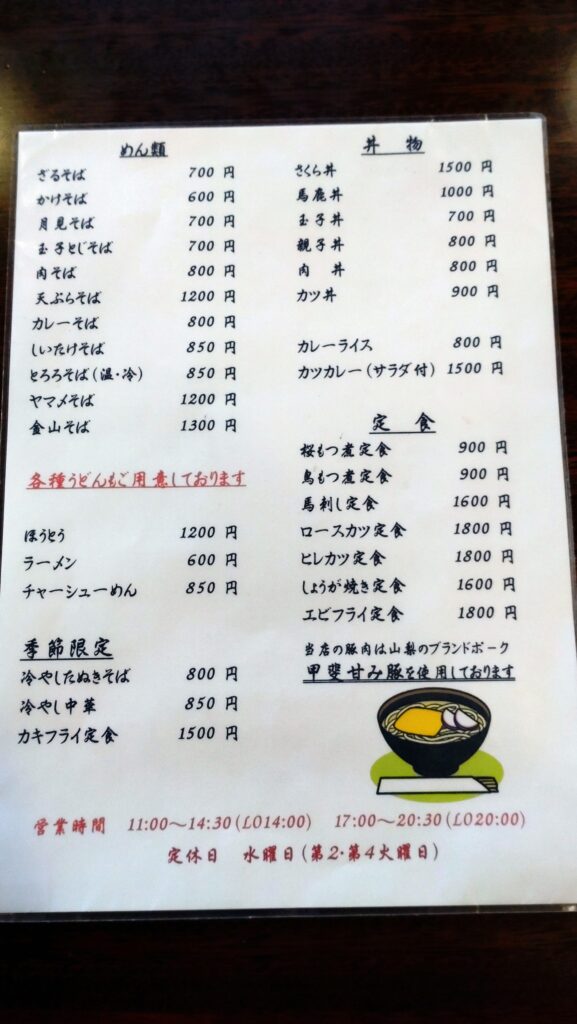 めん類
ざるそば 700 円
かけそば 600 円
月見そば 700 円
玉子とじそば 700 円
肉そば 800 円
天ぷらそば 1200 円
カレーそば 800 円
しいたけそば 850 円
とろろそば(温・冷) 850 円
ヤマメそば 1200 円
金山そば 1300 円
各種うどんもご用意しております
ほうとう 1200 円
ラーメン 600 円
チャーシューめん 850 円
季節限定
冷やしたぬきそば 800 円
冷やし中華 850 円
カキフライ定食 1500 円
丼物
さくら丼 1500 円
馬鹿丼 1000 円
玉子丼 700 円
親子丼 800 円
肉丼 800 円
カツ丼 900 円
カレーライス 800 円
カツカレー(サラダ付) 1500 円
定食
桜もつ煮定食 900 円
鳥もつ煮定食 900 円
馬刺し定食 1600 円
ロースカツ定食 1800 円
ヒレカツ定食 1800 円
しょうが焼き定食 1600 円
エビフライ定食 1800 円
当店の豚肉は山梨のブランドポーク
甲斐甘み豚を使用しております
営業時間 11:00～14:30(LO14:00) 17:00～20:30(LO20:00)
定休日 水曜日(第2・第4火曜日)